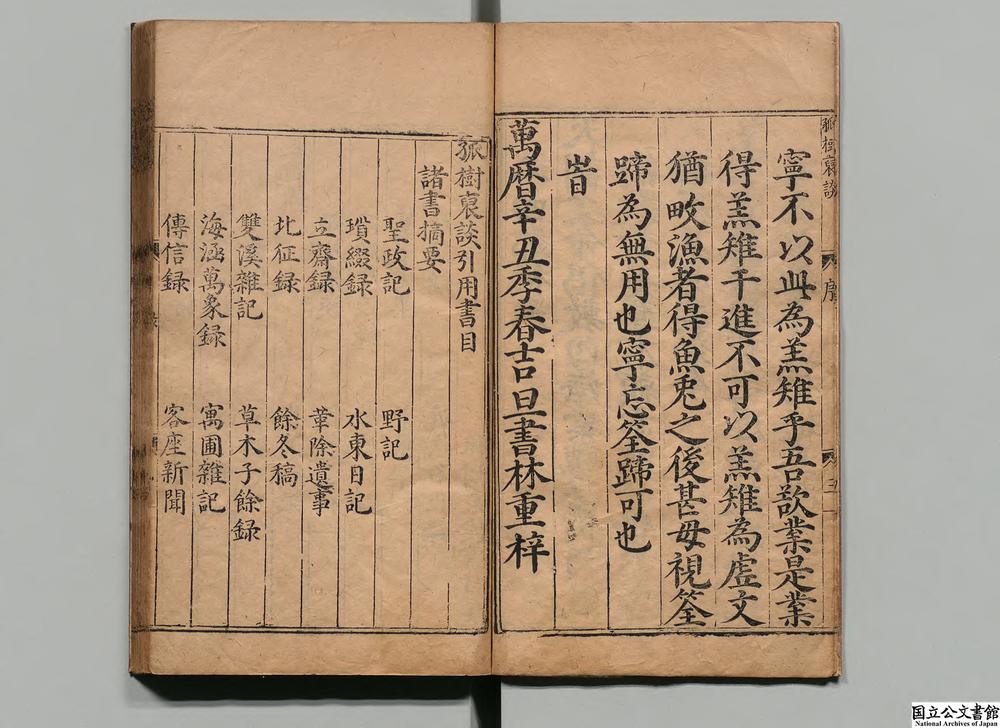 狐樹裒談
序
五
寧不以此為羔雉乎吾欲業是業
得羔雉干進不可以羔雉為虛文
猶畋漁者得魚兎之後甚毋視筌
蹄為無用也寧忘筌蹄可也
旹
萬曆辛丑季春吉旦書林重梓
狐樹裒談引用書目
諸書摘要
聖政記 野記
瑣綴録 水東日記
立齋録 革除遺事
北征録 餘冬稿
雙溪雜記 草木子餘録
海涵萬象録 寓圃雜記
傳信録 客座新聞
国立公文書館
National Archives of Japan